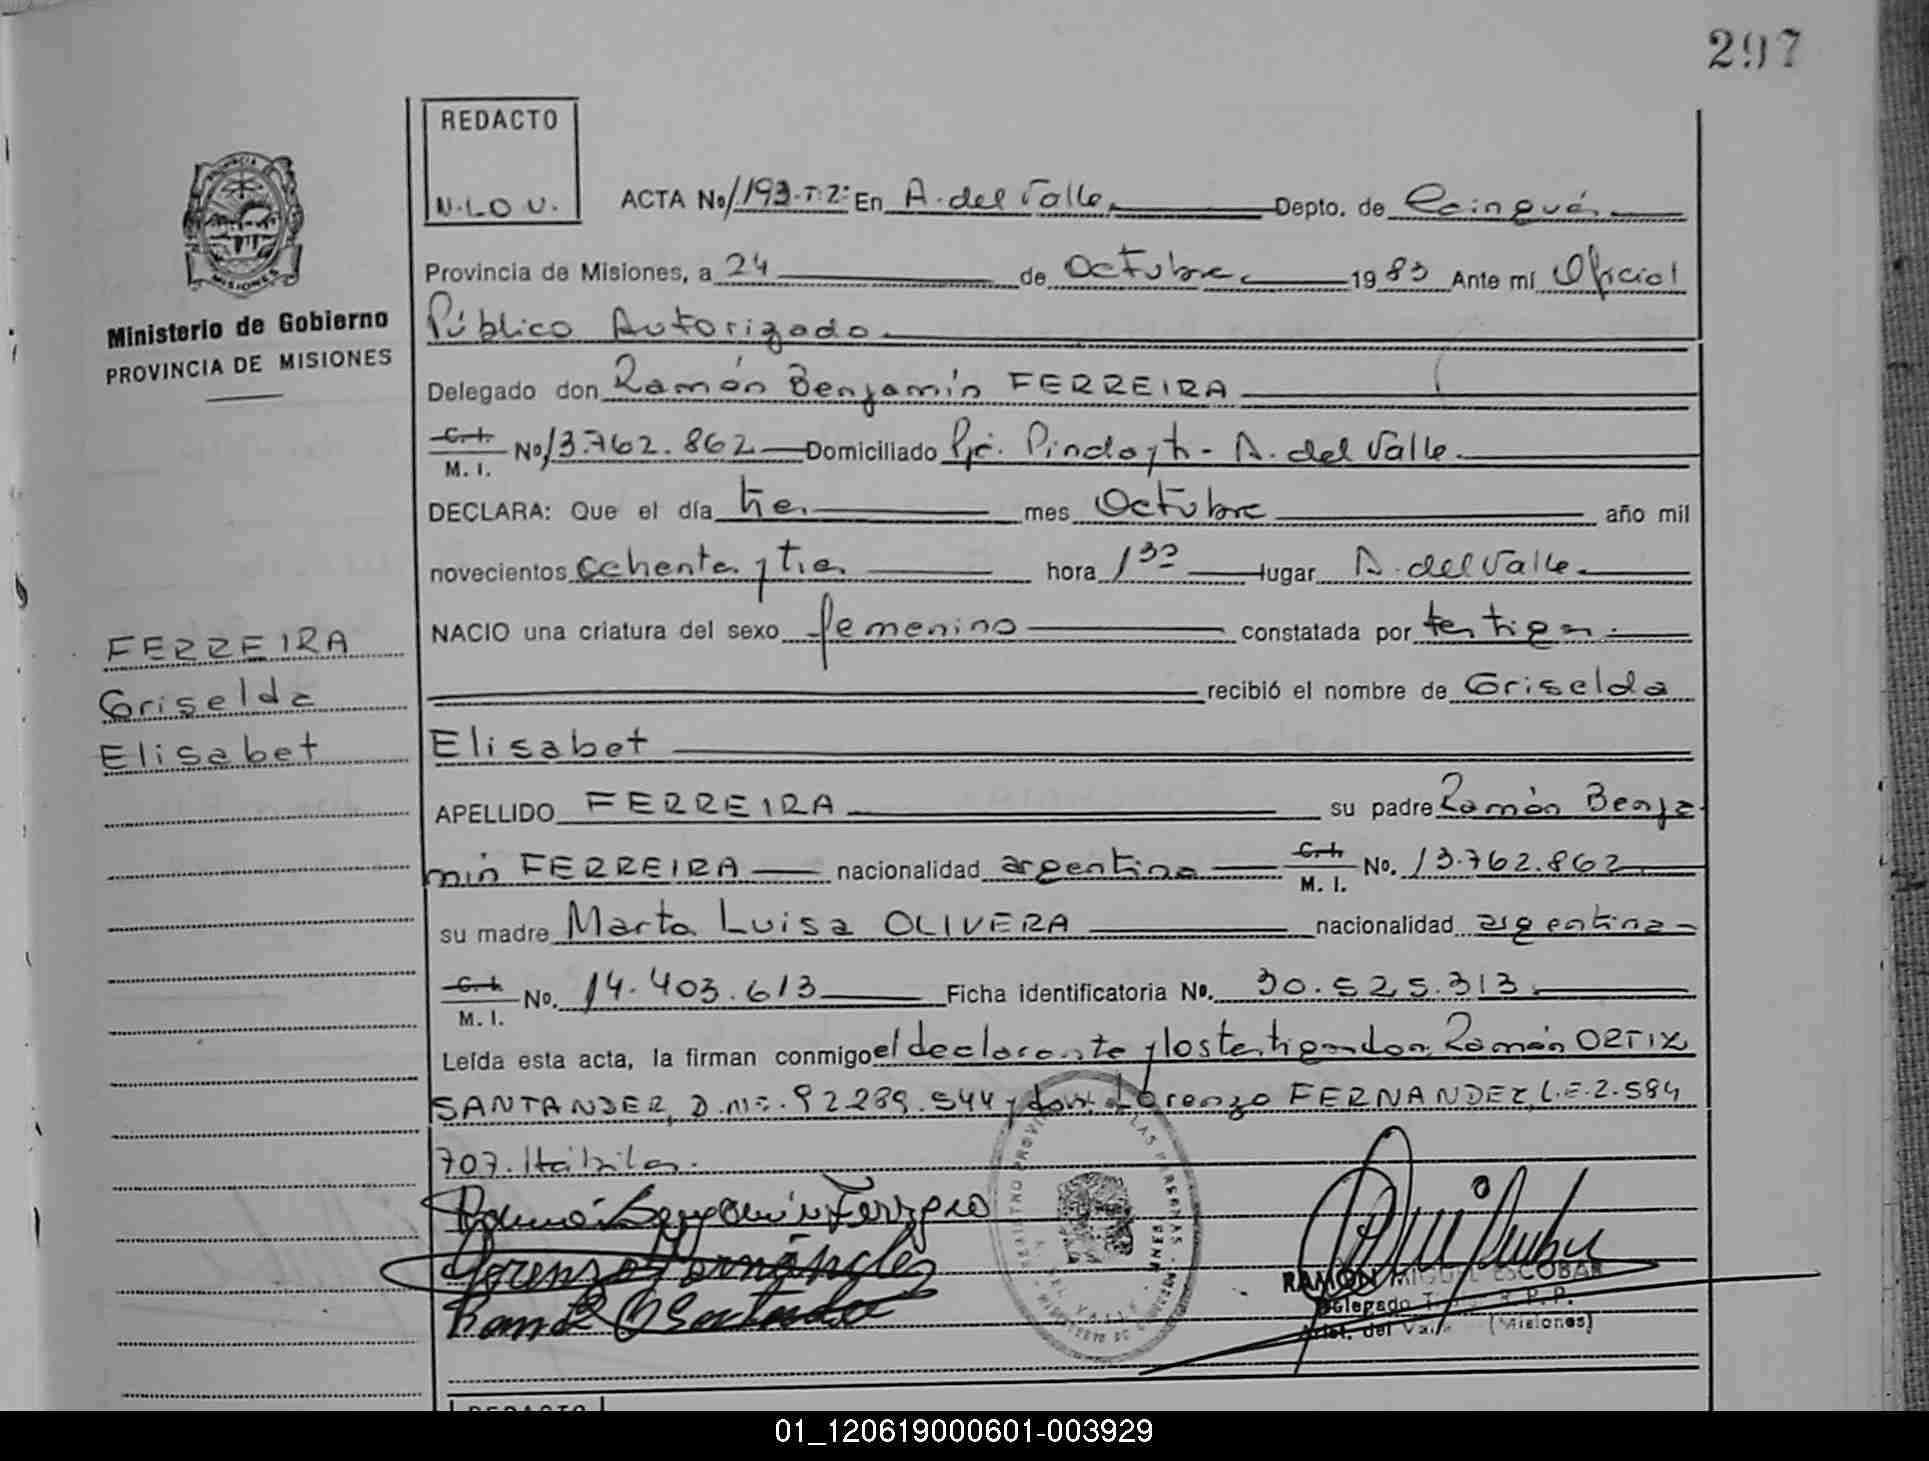 297
REDACTO
N.LO.V.
ACTA No 1193.T.2: En A. del Valle Depto. de Cainguás
PROVINCIA DE
MISIONES
Provincia de Misiones, a 24 de Octubre 1983 Ante mí Oficial
Ministerio de Gobierno
PROVINCIA DE MISIONES
Público Autorizado
Delegado don Ramón Benjamín FERREIRA
C. I. M. I. No 13.762.862 Domiciliado Pje. Pindayti - A. del Valle
DECLARA: Que el día tres mes Octubre año mil
novecientos ochenta y tres hora 1 30 lugar A. del Valle
NACIO una criatura del sexo femenino constatada por testigos
FERREIRA
Griselda
Elisabet
recibió el nombre de Griselda
Elisabet
APELLIDO FERREIRA su padre Ramón Benja
mín FERREIRA nacionalidad argentina C. I. M. I. No. 13.762.862
su madre Marta Luisa OLIVERA nacionalidad argentina
C. I. M. I. No. 14.403.613 Ficha identificatoria No. 30.525.313
Leída esta acta, la firman conmigo el declarante y los testigos don Ramón ORTIX
SANTANDER, D.N.I. 92289.544 y don Lorenzo FERNANDEZ, L.E.2.584
707. Hábiles.
Ramón Benjamín Ferreira
Lorenzo Fernández
Ramón O Santander
RAMON MIGUEL ESCOBAR
Delegado R. P. P.
Arist. del Valle (Misiones)
REDACTO
01_120619000601-003929